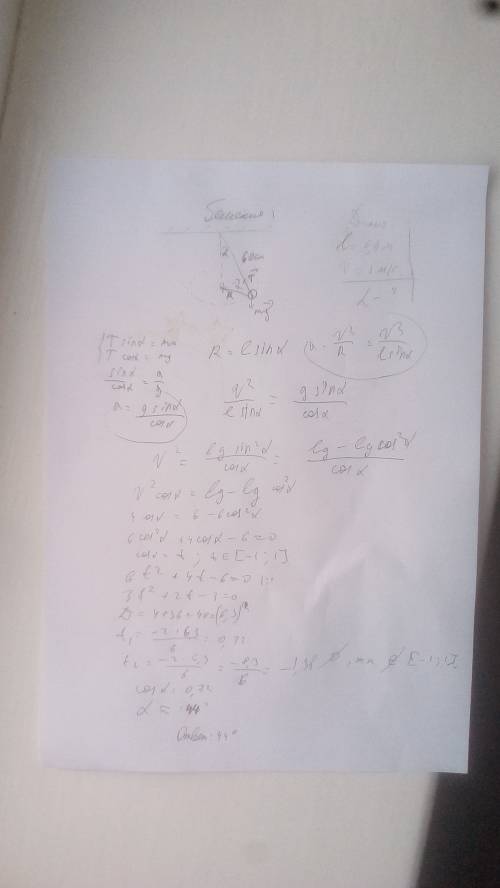 Решение:
Дано
α - ?
α
60см
T
R
mg
T sinα = ma
T cosα = mg
R = l sinα
a = v²/R = v²/(l sinα)
sinα/cosα = a/g
a = g sinα/cosα
v²/(l sinα) = g sinα/cosα
v² = lg sin²α/cosα = (lg - lg cos²α)/cosα
v² cosα = lg - lg cos²α
4 cosα = 6 - 6cos²α
6cos²α + 4cosα - 6 = 0
cosα = t; t ∈ [-1; 1]
6t² + 4t - 6 = 0
3t² + 2t - 3 = 0
D = 4 + 36 = 40 = (6,3)²
t₁ = (-2 + 6,3)/6 = 0,72
t₂ = (-2 - 6,3)/6 = -8,3/6 = -1,38 ∅, тк ∉ [-1; 1]
cosα = 0,72
α ≈ 44°
Ответ: 44°